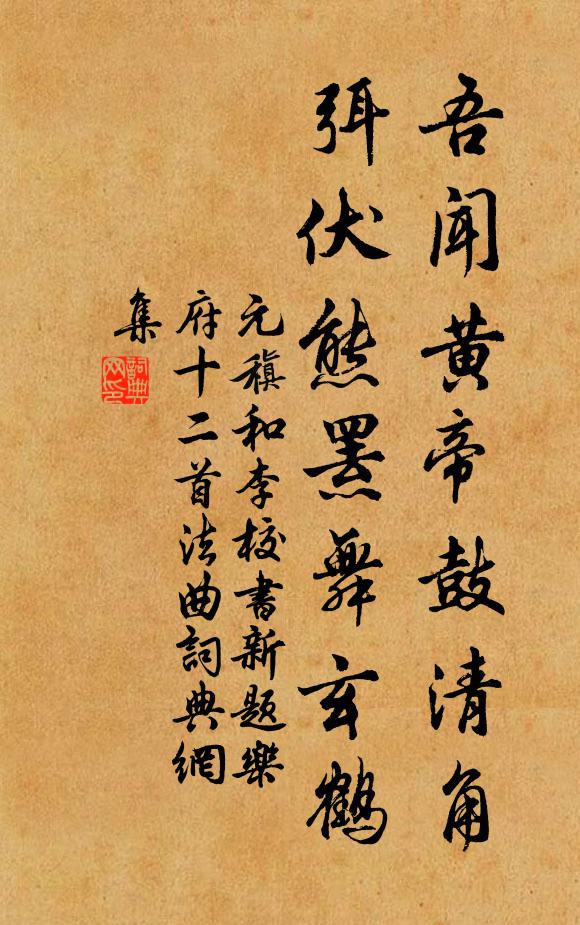 吾聞黃帝鼓清角
弭伏熊羆舞玄鶴
元稹和李校書新題樂
府十二首法曲詞典網
集
詞典
网印